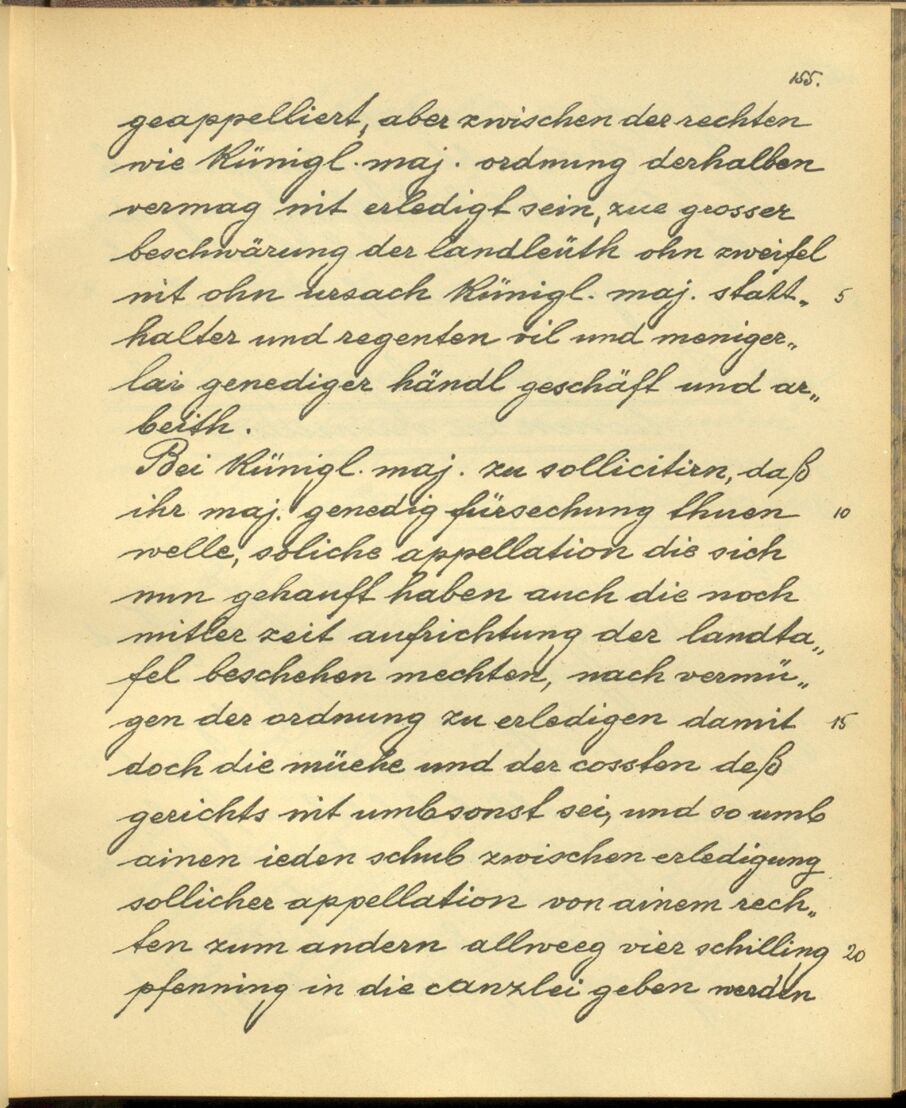 155.
geappelliert, aber zwischen der rechten
wie Künigl. maj. ordnung derhalben
vermag nit erledigt sein, zue grosser
beschwärung der landleüth ohn zweifel
nit ohn ursach Künigl. maj. statt„ 5
halter und regenten vil und meniger„
lai genediger händl geschäft und ar„
beith.
Bei Künigl. maj. zu sollicitirn, daß
ihr maj. genedig fürsechung thuen 10
welle, soliche appellation die sich
nun gehauft haben auch die noch
mitler zeit aufrichtung der landta„
fel beschehen mechten, nach vermü„
gen der ordnung zu erledigen damit 15
doch die müehe und der cossten deß
gerichts nit umbsonst sei, und so umb
ainen ieden schub zwischen erledigung
sollicher appellation von ainem rech„
ten zum andern allweeg vier schilling 20
pfenning in die canzlei geben werden